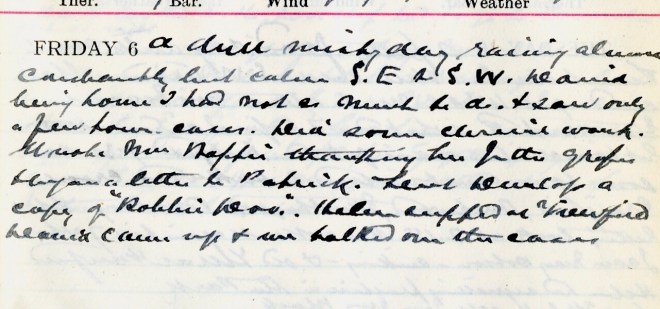 Ther. Bar. Wind Weather
FRIDAY 6 a dull misty day raining almost
Constantly but calm S.E to S.W. David
being home I had not as much to do. & saw only
a few hour cases. Did some clerical work.
Wrote Mrs thanking her for the Grapes
& began a letter to Patrick. Sent Dunlop a
copy of "Robbie Doo". Helen supped at
David came up & we talked over the cases